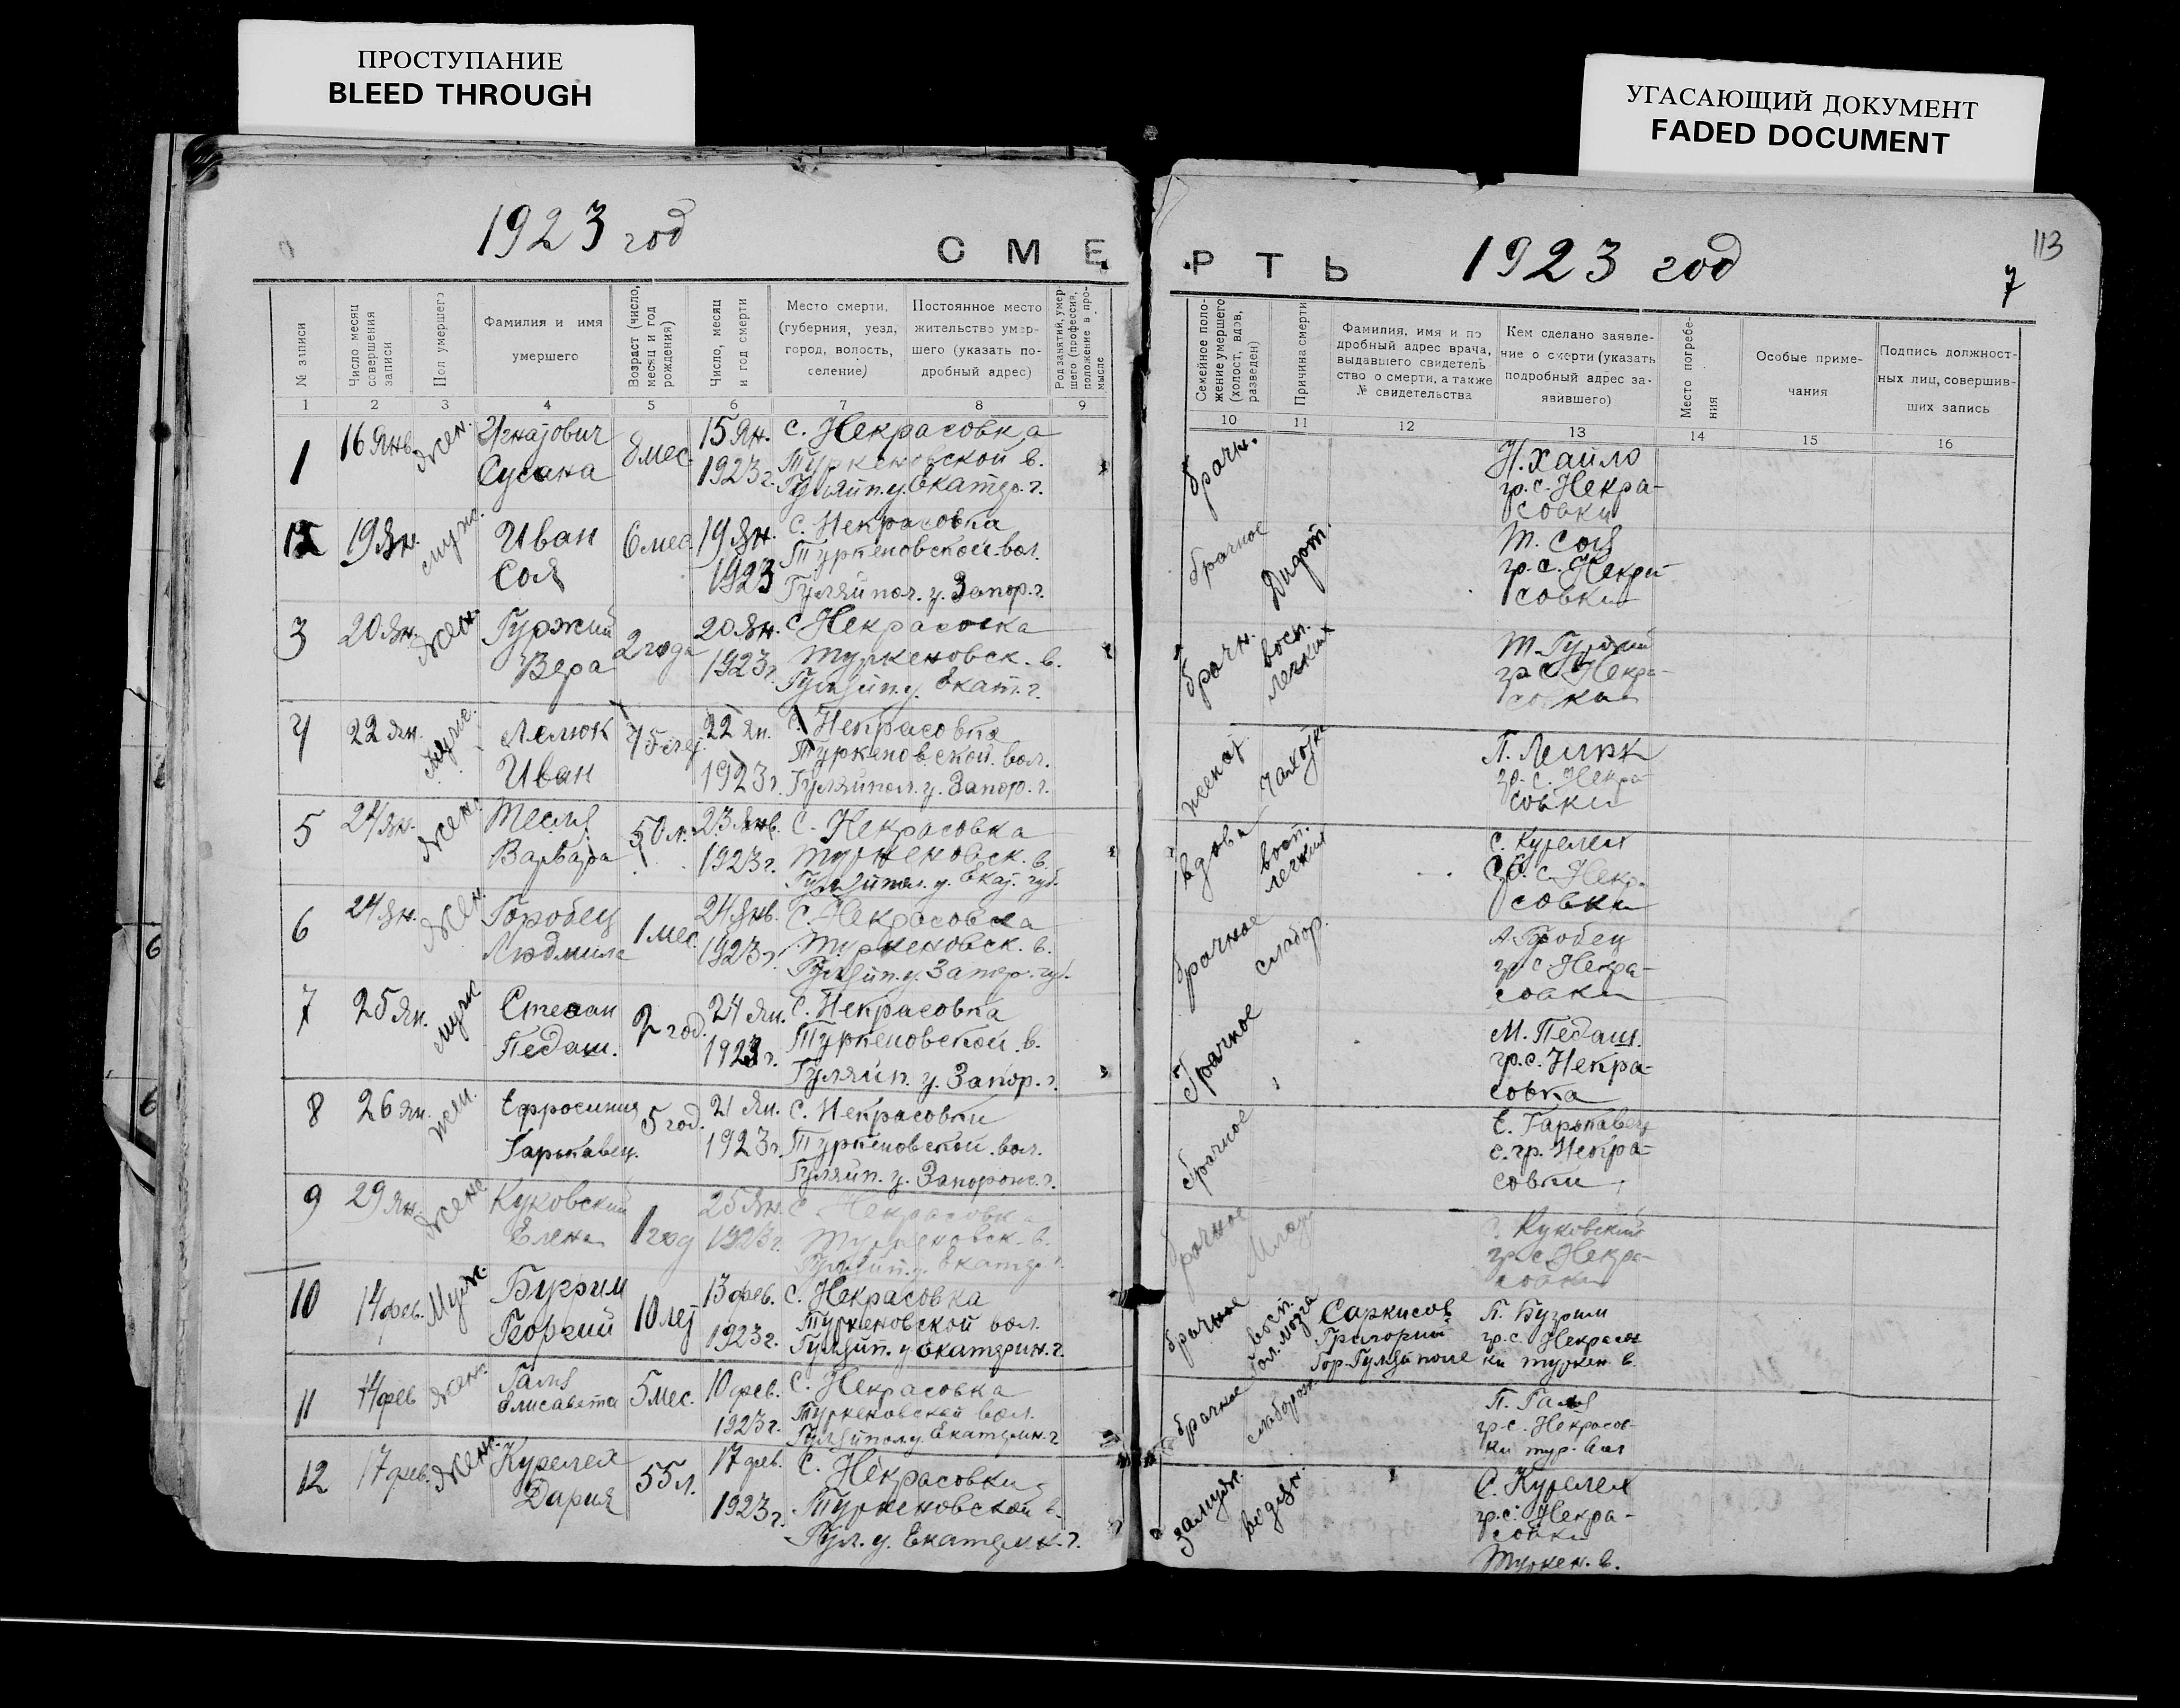 ПРОСТУПАНИЕ
BLEED THROUGH
УГАСАЮЩИЙ ДОКУМЕНТ
FADED DOCUMENT
1923 год
С М Е Р Т Ь
1923 год
113
7
№ записи
Число месяц совершения записи
Пол умершего
Фамилия и имя умершего
Возраст (число, месяц и год рождения)
Число, месяц и год смерти
Место смерти, (губерния, уезд, город, волость, селение)
Постоянное место жительство умершего (указать подробный адрес)
Род занятий, умершего (профессия, положение в промысле
Семейное положение умершего (холост, вдов, разведен)
Причина смерти
Фамилия, имя и подробный адрес врача, выдавшего свидетельство о смерти, а также № свидетельства
Кем сделано заявление о смерти (указать подробный адрес заявившего)
Место погребения
Особые примечания
Подпись должностных лиц, совершивших запись
1 2 3 4 5 6 7 8 9 10 11 12 13 14 15 16
1 16 Янв. жен.
Сусана
8 мес.
15 Ян.
1923 г.
с. Некрасовка
Туркеновской в.
Гуляйп. у. Екатер. г.
брачн.
Н. Хайло
гр. с. Некра-
совки
19 Ян. муж.
Иван
Соя
6 мес.
19 Ян.
1923
с. Некрасовка
Туркеновской вол.
Гуляйпол. у. Запор. г.
брачное
Т. Соя
гр. с. Некра-
совки
3 20 Ян. жен.
Гуржий
Вера
2 года
20 Ян.
1923 г.
с. Некрасовка
Туркеновск. в.
Гуляйп. у. Екат. г.
брачн.
восп.
легких
Т. Гуржий
гр. с. Некра-
совки
4 22 Ян. муж.
Лелюк
Иван
22 Ян.
1923 г.
с. Некрасовка
Туркеновской вол.
Гуляйпол. у. Запор. г.
женат
чахотка
П. Лелюк
гр. с. Некра-
совки
5 24 Ян. жен.
Тесля
Варвара
50 л.
23 Янв.
1923 г.
с. Некрасовка
Туркеновск. в.
Гуляйпол. у. Екат. губ.
вдова
восп.
легких
С. Курелех
гр. с. Некра-
совки
6 24 Ян. жен.
Горобец
Людмила
1 мес.
24 Янв.
1923 г.
с. Некрасовка
Туркеновск. в.
Гуляйп. у. Запор. губ.
брачное
слабор.
А. Горобец
гр. с. Некра-
совки
7 25 Ян. муж
Степан
Педаш.
2 год.
24 Ян.
1923 г.
с. Некрасовка
Туркеновской в.
Гуляйп. у. Запор. г.
брачное
М. Педаш.
гр. с. Некра-
совка
8 26 Ян. жен.
Ефросиния
Гарькавец.
5 год.
21 Ян.
1923 г.
с. Некрасовки
Туркеновской вол.
Гуляйп. у. Запорож. г.
брачное
Е. Гарькавец
с. гр. Некра-
совки
9 29 Ян. жен
Куковский
Елена
1 год
25 Ян.
1923 г.
с. Некрасовка
Туркеновск. в.
Гуляйп. у. Екатер. г.
брачное
Куковский
гр. с. Некра-
совки
10 14 фев. Муж.
Бугрим
Георгий
10 лет
13 фев.
1923 г.
с. Некрасовка
Туркеновской вол.
Гуляйп. у Екатерин. г.
брачное
восп.
гол. мозга
Саркисов
Григорий
Гор. Гуляй поле
П. Бугрим
гр. с. Некрасов
ки туркен. в.
11 14 фев жен.
Галя
Елисавета
5 мес.
10 фев.
1923 г.
с. Некрасовка
Туркеновской вол.
Гуляйпол у. Екатерин. г.
брачное
П. Галя
гр. с. Некрасов-
ки тур. вол
12 17 фев. жен.
Курелех
Дария
55 л.
17 фев.
1923 г.
с. Некрасовки
Туркеновской в.
Гул. у. Екатерин. г.
замужн.
водян.
С. Курелех
гр. с. Некра-
совки
Туркен. в.